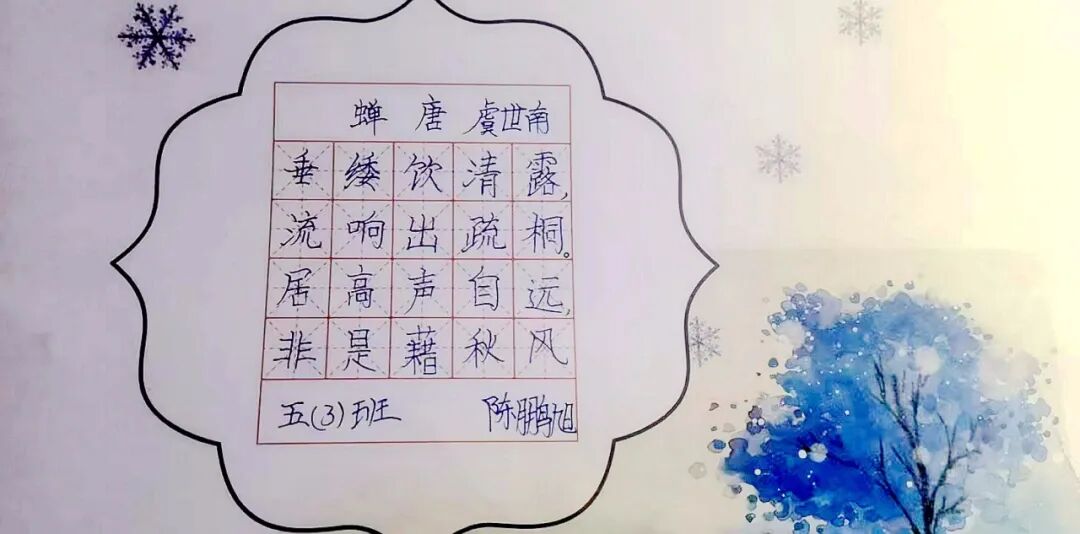 蝉 唐 虞世南
垂緌饮清露,
流响出疏桐。
居高声自远,
非是藉秋风
五(3)班 陈鹏旭